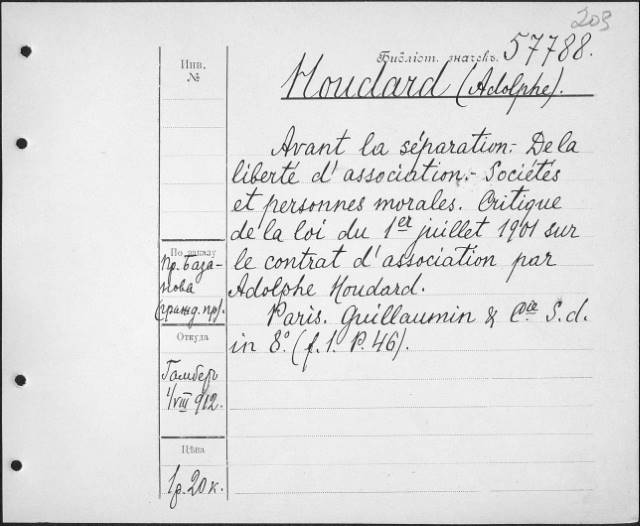 203
Библіот. значекъ. 57788.
Инв.
№
Houdard (Adolphe).
Avant la séparation.- De la
liberté d'association.- Sociétés
et personnes morales. Critique
de la loi du 1er juillet 1901 sur
le contrat d'association par
Adolphe Houdard.
Paris. Guillaumin & Cie S.d.
in 8.° (f. 1. P. 46).
По заказу
пр. База-
нова
(гражд. пр).
Откуда
Гамберъ
1/VIII 912.
Цѣна
1р. 20 к.